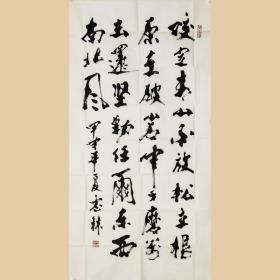 咬定青山不放松立根
原在破岩中千磨万
击还坚劲任尔东西
南北风
甲申年夏